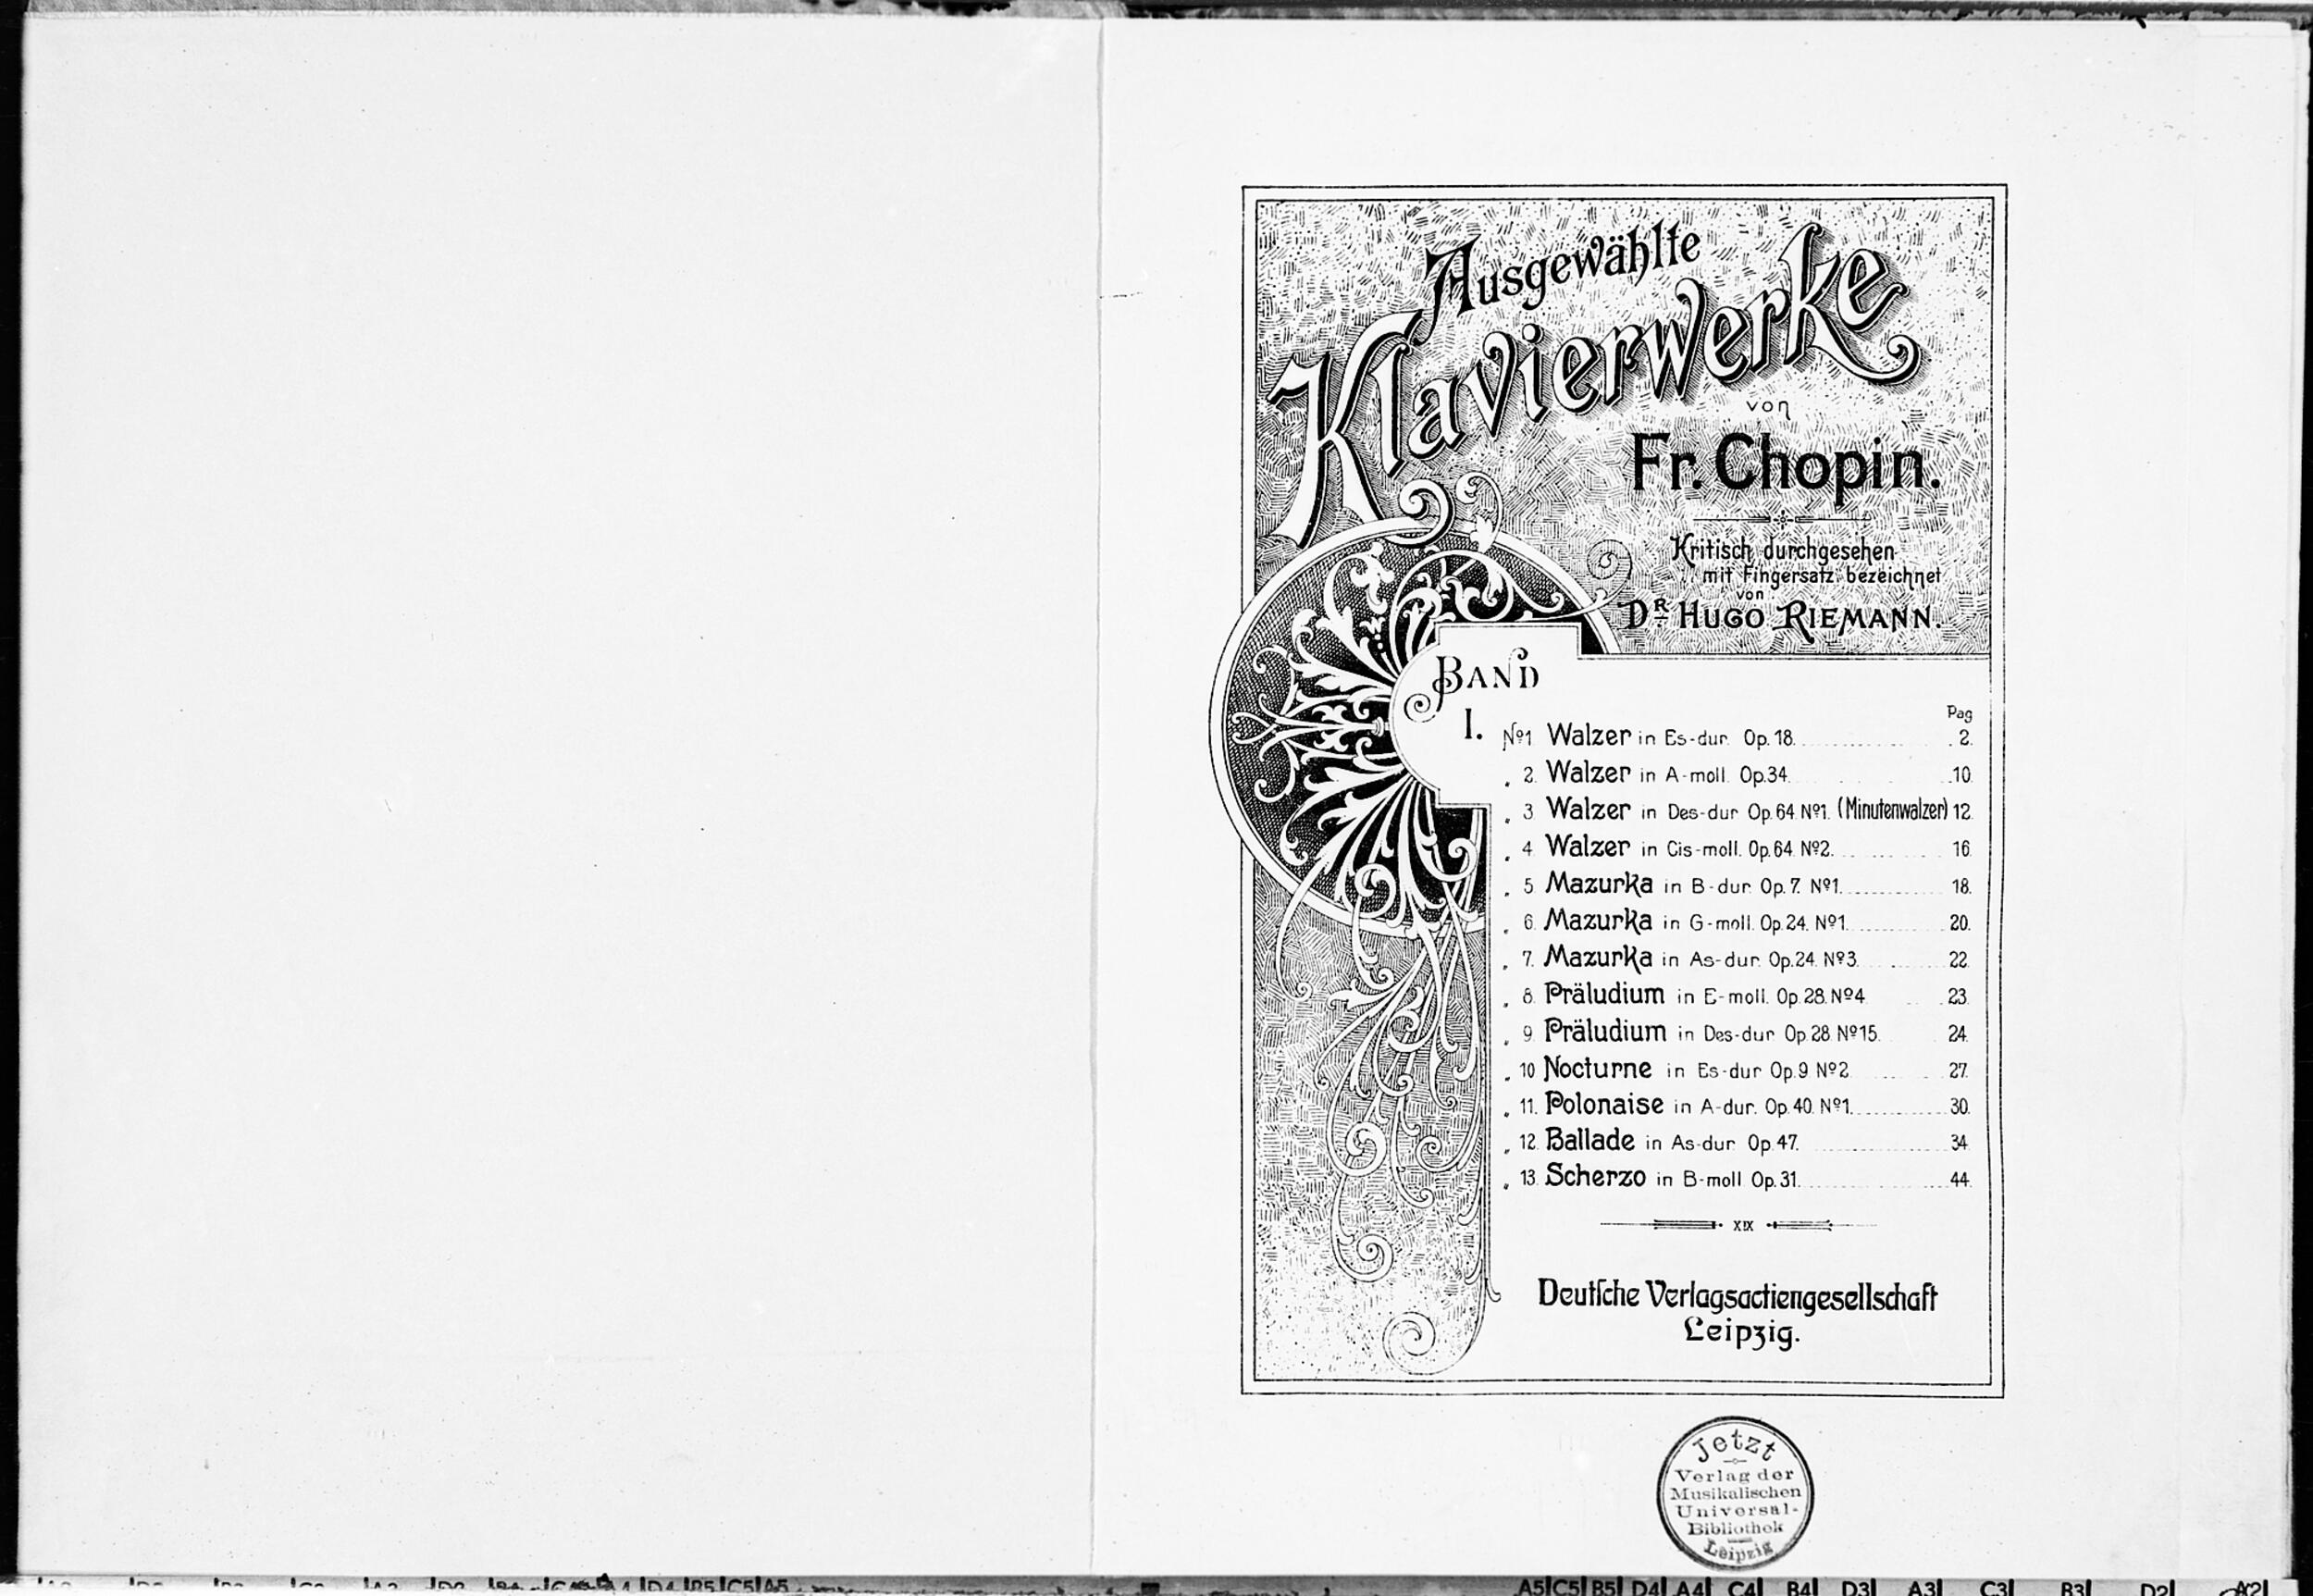 Ausgewählte
Klavierwerke
von
Fr. Chopin.
Kritisch durchgesehen
mit Fingersatz bezeichnet
von
DR HUGO RIEMANN.
BAND
I.
Pag
No1 Walzer in Es-dur. Op. 18. 2.
" 2. Walzer in A-moll. Op. 34. 10.
" 3. Walzer in Des-dur Op. 64 No1. (Minutenwalzer) 12.
" 4. Walzer in Cis-moll. Op. 64 No2. 16.
" 5. Mazurka in B-dur. Op. 7. No1. 18.
" 6. Mazurka in G-moll. Op. 24. No1. 20.
" 7. Mazurka in As-dur. Op. 24. No3. 22.
" 8. Präludium in E-moll. Op. 28. No4. 23.
" 9. Präludium in Des-dur Op. 28 No15. 24.
" 10 Nocturne in Es-dur Op. 9 No2. 27.
" 11. Polonaise in A-dur. Op. 40. No1. 30.
" 12. Ballade in As-dur Op. 47. 34.
" 13. Scherzo in B-moll Op. 31. 44.
XIX
Deutſche Verlagsactiengesellschaft
Leipzig.
Jetzt
Verlag der
Musikalischen
Universal-
Bibliothek
Leipzig
A5 C5 B5 D4 A4 C4 B4 D3 A3 C3 B3 D2 A2